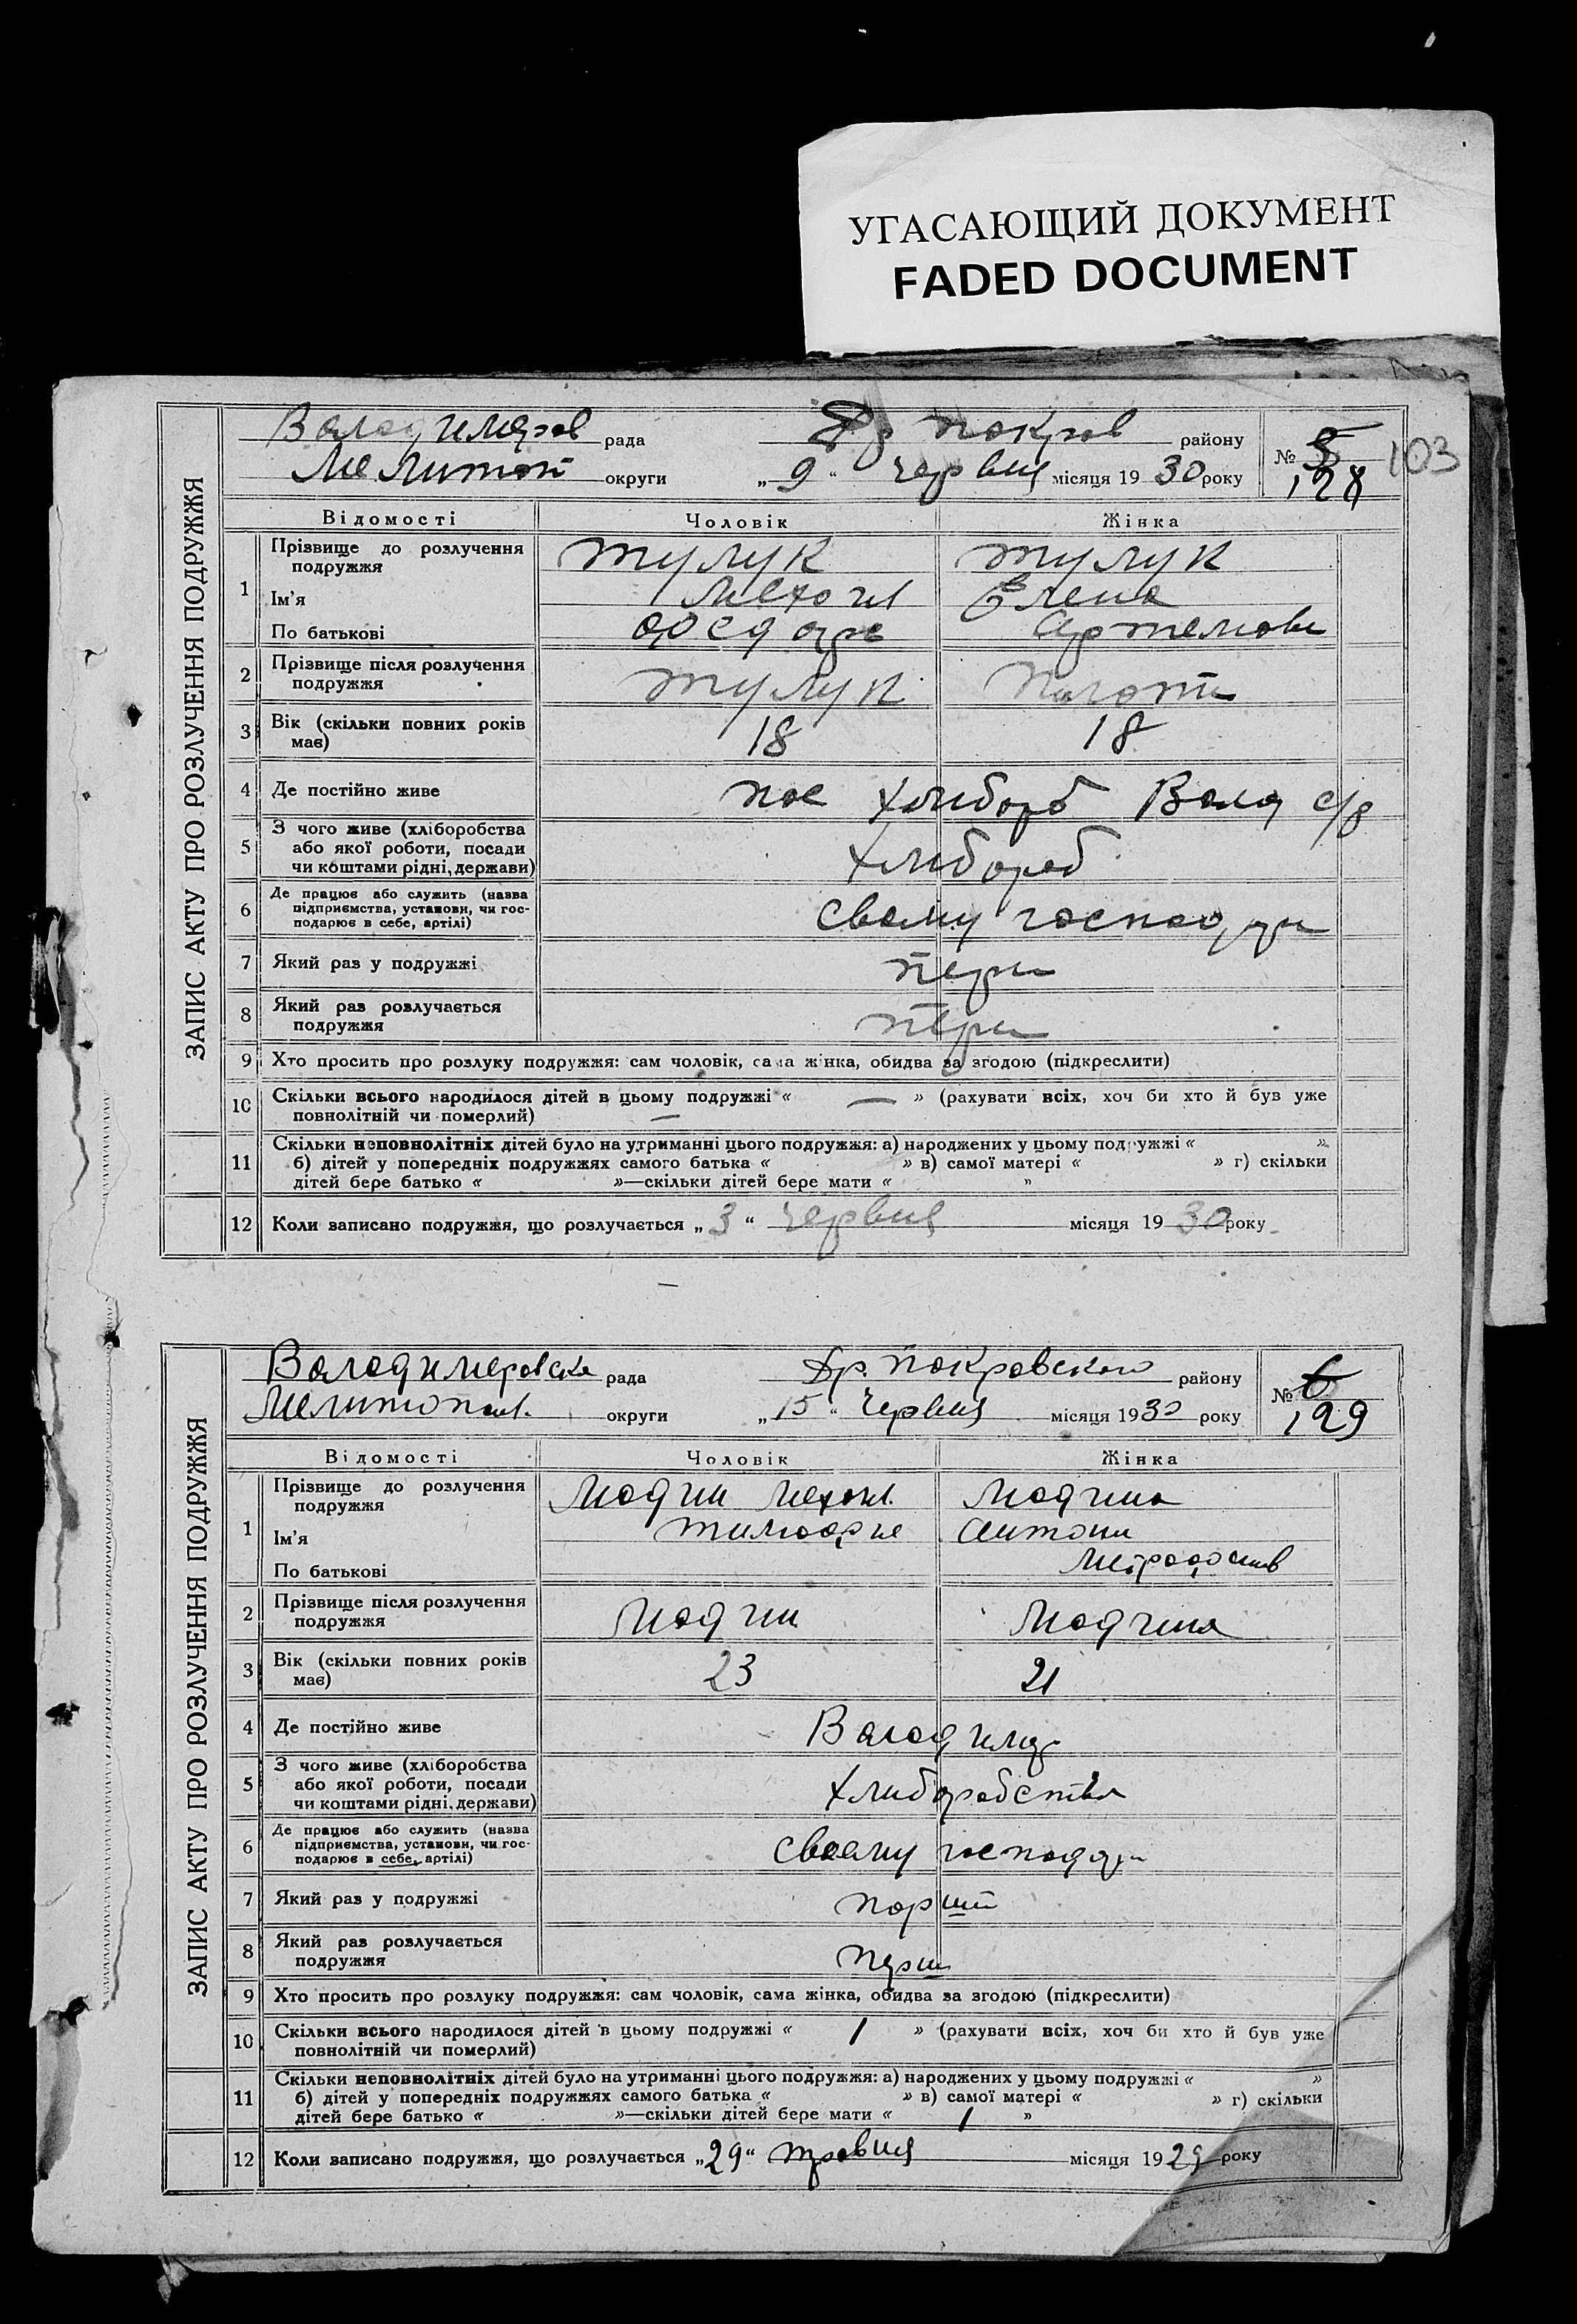 УГАСАЮЩИЙ ДОКУМЕНТ
FADED DOCUMENT
103
ЗАПИС АКТУ ПРО РОЗЛУЧЕННЯ ПОДРУЖЖЯ
Володимеров рада Др Покров району № 5
Мелитоп округи „ 9 “ червня місяця 1930 року 128
Відомості Чоловік Жінка
1 Прізвище до розлучення Тулук Тулук
подружжя
Ім'я Михаил Елена
По батькові Федоров Артемова
2 Прізвище після розлучення Тулук
подружжя
3 Вік (скільки повних років 18 18
має)
4 Де постійно живе пос Хлибороб Волод с/р
5 З чого живе (хліборобства
або якої роботи, посади Хлибороб
чи коштами рідні, держави)
6 Де працює або служить (назва
підприємства, установи, чи гос- Своему господар
подарює в себе, артілі)
7 Який раз у подружжі перш
8 Який раз розлучається перш
подружжя
9 Хто просить про розлуку подружжя: сам чоловік, сама жінка, обидва за згодою (підкреслити)
10 Скільки всього народилося дітей в цьому подружжі « — » (рахувати всіх, хоч би хто й був уже
повнолітній чи померлий) —
11 Скільки неповнолітніх дітей було на утриманні цього подружжя: а) народжених у цьому подружжі « »
б) дітей у попередніх подружжях самого батька « » в) самої матері « » г) скільки
дітей бере батько « »—скільки дітей бере мати « »
12 Коли записано подружжя, що розлучається „ 3 “ червня місяця 1930 року
ЗАПИС АКТУ ПРО РОЗЛУЧЕННЯ ПОДРУЖЖЯ
Володимеровска рада Др. Покровского району № 6
Мелитопол. округи „ 15 “ червня місяця 1930 року 129
Відомості Чоловік Жінка
1 Прізвище до розлучення Модин Михаил Модина
подружжя
Ім'я Тимофее Антони
По батькові Митрофанов
2 Прізвище після розлучення Модин Модина
подружжя
3 Вік (скільки повних років 23 21
має)
4 Де постійно живе Володимер
5 З чого живе (хліборобства
або якої роботи, посади Хлиборобства
чи коштами рідні, держави)
6 Де працює або служить (назва
підприємства, установи, чи гос- Своему господар
подарює в себе, артілі)
7 Який раз у подружжі перший
8 Який раз розлучається перш
подружжя
9 Хто просить про розлуку подружжя: сам чоловік, сама жінка, обидва за згодою (підкреслити)
10 Скільки всього народилося дітей в цьому подружжі « 1 » (рахувати всіх, хоч би хто й був уже
повнолітній чи померлий)
11 Скільки неповнолітніх дітей було на утриманні цього подружжя: а) народжених у цьому подружжі « »
б) дітей у попередніх подружжях самого батька « » в) самої матері « » г) скільки
дітей бере батько « »—скільки дітей бере мати « 1 »
12 Коли записано подружжя, що розлучається „29“ травня місяця 1929 року